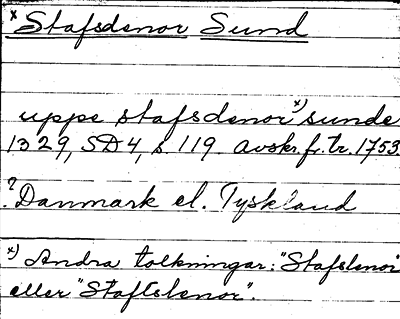 x Stafsdenor Sund
uppe stafsdenor x) sunde
1329, SD4, s. 119. avskr. fr. tr. 1753.
? Danmark el. Tyskland
x) Andra tolkningar: "Stafslenor"
eller "Staftslenor".